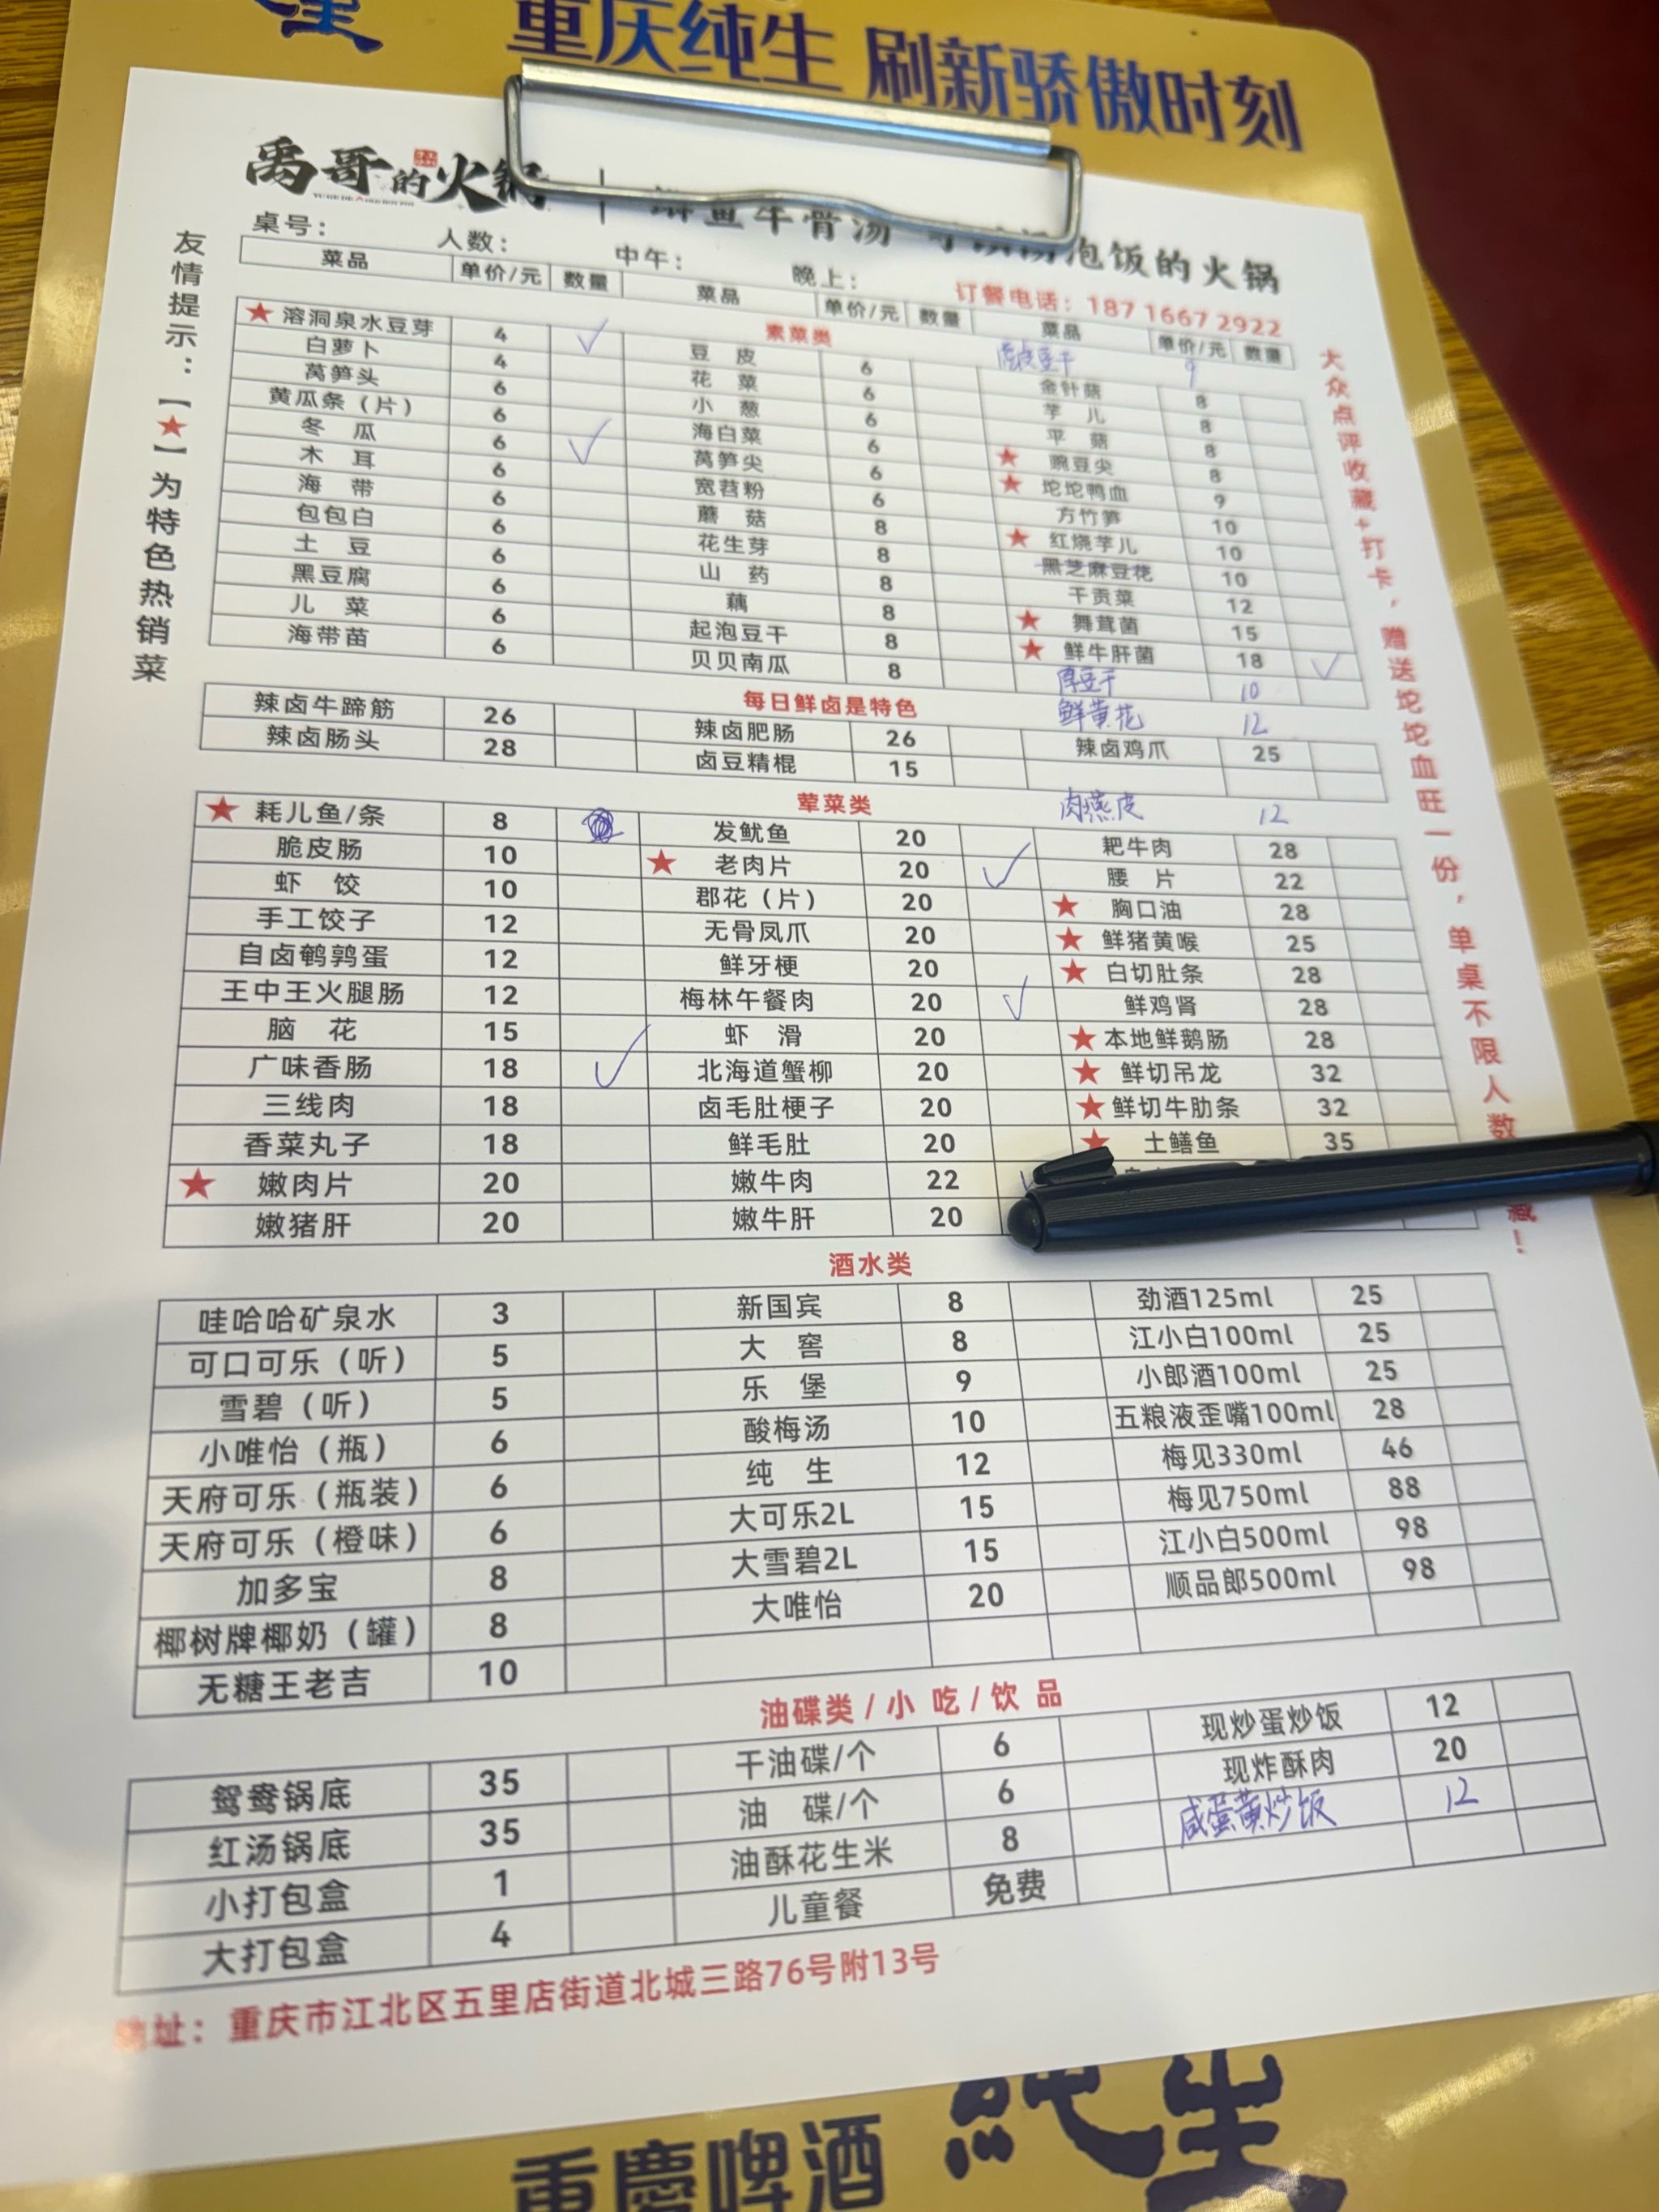 重庆纯生 刷新骄傲时刻
禹哥的火锅
泡饭的火锅
桌号： 人数： 中午： 晚上： 订餐电话：187 1667 2922
友情提示：【★】为特色热销菜
大众点评收藏+打卡，赠送坨坨血旺一份，单桌不限人数
菜品 单价/元 数量 菜品 单价/元 数量 菜品 单价/元 数量
素菜类
★ 溶洞泉水豆芽 4 ✓ 豆皮 6 豆干 9
白萝卜 4 花菜 6 金针菇 8
莴笋头 6 小葱 6 芋儿 8
黄瓜条（片） 6 海白菜 6 平菇 8
冬瓜 6 ✓ 莴笋尖 6 ★ 豌豆尖 8
木耳 6 宽苕粉 6 ★ 坨坨鸭血 9
海带 6 蘑菇 8 方竹笋 10
包包白 6 花生芽 8 ★ 红烧芋儿 10
土豆 6 山药 8 黑芝麻豆花 10
黑豆腐 6 藕 8 干贡菜 12
儿菜 6 起泡豆干 8 ★ 舞茸菌 15
海带苗 6 贝贝南瓜 8 ★ 鲜牛肝菌 18 ✓
厚豆干 10
鲜黄花 12
每日鲜卤是特色
辣卤牛蹄筋 26 辣卤肥肠 26 辣卤鸡爪 25
辣卤肠头 28 卤豆精棍 15
荤菜类
肉燕皮 12
★ 耗儿鱼/条 8 发鱿鱼 20 耙牛肉 28
脆皮肠 10 ★ 老肉片 20 ✓ 腰片 22
虾饺 10 郡花（片） 20 ★ 胸口油 28
手工饺子 12 无骨凤爪 20 ★ 鲜猪黄喉 25
自卤鹌鹑蛋 12 鲜牙梗 20 ★ 白切肚条 28
王中王火腿肠 12 梅林午餐肉 20 ✓ 鲜鸡肾 28
脑花 15 虾滑 20 ★ 本地鲜鹅肠 28
广味香肠 18 ✓ 北海道蟹柳 20 ★ 鲜切吊龙 32
三线肉 18 卤毛肚梗子 20 ★ 鲜切牛肋条 32
香菜丸子 18 鲜毛肚 20 ★ 土鳝鱼 35
★ 嫩肉片 20 嫩牛肉 22
嫩猪肝 20 嫩牛肝 20
酒水类
哇哈哈矿泉水 3 新国宾 8 劲酒125ml 25
可口可乐（听） 5 大窖 8 江小白100ml 25
雪碧（听） 5 乐堡 9 小郎酒100ml 25
小唯怡（瓶） 6 酸梅汤 10 五粮液歪嘴100ml 28
天府可乐（瓶装） 6 纯生 12 梅见330ml 46
天府可乐（橙味） 6 大可乐2L 15 梅见750ml 88
加多宝 8 大雪碧2L 15 江小白500ml 98
椰树牌椰奶（罐） 8 大唯怡 20 顺品郎500ml 98
无糖王老吉 10
油碟类/小吃/饮品
鸳鸯锅底 35 干油碟/个 6 现炒蛋炒饭 12
红汤锅底 35 油碟/个 6 现炸酥肉 20
小打包盒 1 油酥花生米 8 咸蛋黄炒饭 12
大打包盒 4 儿童餐 免费
地址：重庆市江北区五里店街道北城三路76号附13号
重慶啤酒 純生